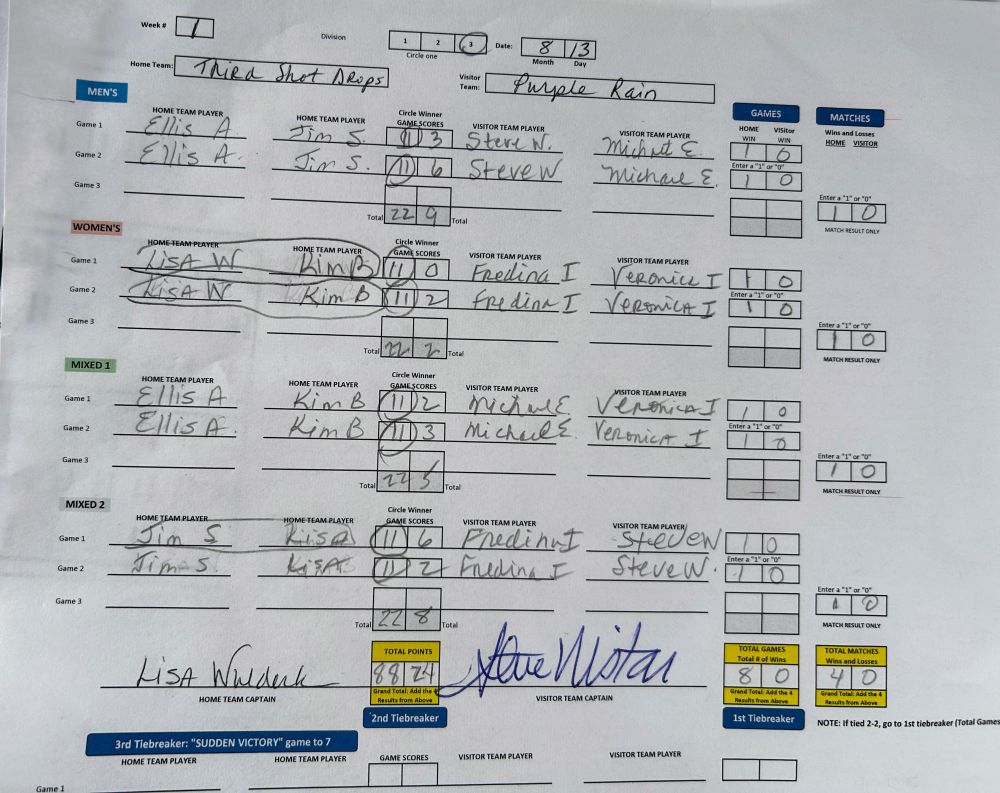 Week # 1 Division 1 2 3 Date: 8 13
Circle one Month Day
Home Team: Third Shot Drops Visitor Team: Purple Rain
MEN'S GAMES MATCHES
HOME TEAM PLAYER HOME TEAM PLAYER Circle Winner GAME SCORES VISITOR TEAM PLAYER VISITOR TEAM PLAYER HOME WIN Visitor WIN Wins and Losses HOME VISITOR
Game 1 Ellis A Jim S. 11 3 Steve N. Michael E. 1 0
Enter a "1" or "0"
Game 2 Ellis A. Jim S. 11 6 Steve W Michael E. 1 0
Game 3 Enter a "1" or "0"
Total 22 9 Total 1 0
MATCH RESULT ONLY
WOMEN'S
HOME TEAM PLAYER HOME TEAM PLAYER Circle Winner GAME SCORES VISITOR TEAM PLAYER VISITOR TEAM PLAYER
Game 1 LISA W Kim B 11 0 Fredina I Veronica I 1 0
Enter a "1" or "0"
Game 2 LISA W Kim B 11 2 Fredina I Veronica I 1 0
Game 3 Enter a "1" or "0"
Total 22 2 Total 1 0
MATCH RESULT ONLY
MIXED 1
HOME TEAM PLAYER HOME TEAM PLAYER Circle Winner GAME SCORES VISITOR TEAM PLAYER VISITOR TEAM PLAYER
Game 1 Ellis A Kim B 11 2 Michael E Veronica I 1 0
Enter a "1" or "0"
Game 2 Ellis A. Kim B 11 3 Michael E. Veronica I 1 0
Game 3 Enter a "1" or "0"
Total 22 5 Total 1 0
MATCH RESULT ONLY
MIXED 2
HOME TEAM PLAYER HOME TEAM PLAYER Circle Winner GAME SCORES VISITOR TEAM PLAYER VISITOR TEAM PLAYER
Game 1 Jim S LISA 11 6 Fredina I Steve W 1 0
Enter a "1" or "0"
Game 2 Jim S. LISA 11 2 Fredina I Steve W. 1 0
Game 3 Enter a "1" or "0"
Total 22 8 Total 1 0
MATCH RESULT ONLY
TOTAL POINTS TOTAL GAMES TOTAL MATCHES
Total # of Wins Wins and Losses
LISA 88 24 Steve 8 0 4 0
HOME TEAM CAPTAIN Grand Total: Add the 4 Results from Above VISITOR TEAM CAPTAIN Grand Total: Add the 4 Results from Above Grand Total: Add the 4 Results from Above
2nd Tiebreaker 1st Tiebreaker NOTE: If tied 2-2, go to 1st tiebreaker (Total Games
3rd Tiebreaker: "SUDDEN VICTORY" game to 7
HOME TEAM PLAYER HOME TEAM PLAYER GAME SCORES VISITOR TEAM PLAYER VISITOR TEAM PLAYER
Game 1